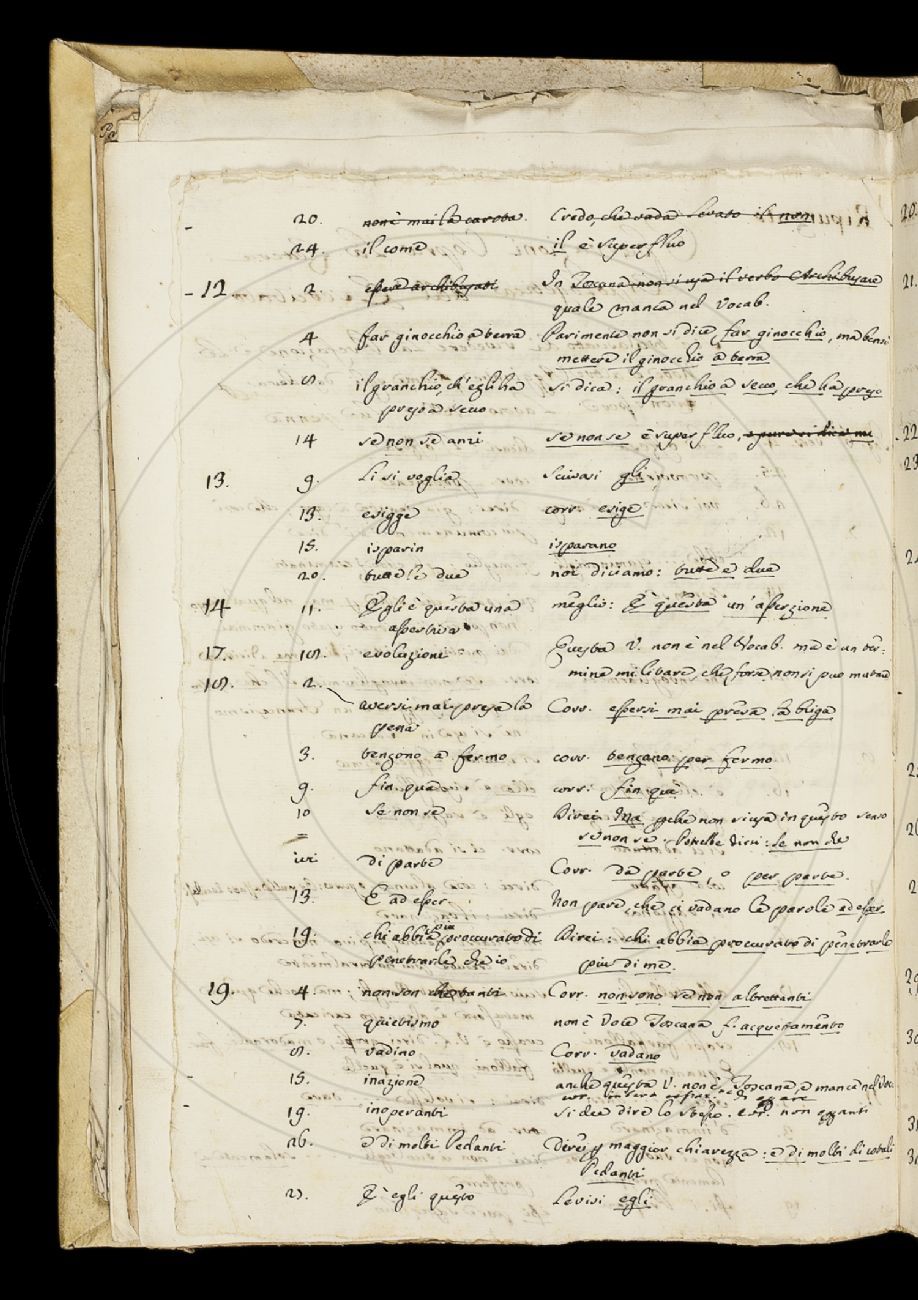 20. non è mai la carota Credo, che vada levato il non
24. il come il è superfluo
12 2 essere archibugati In Toscana non si usa il verbo Archibugiare
quale manca nel Vocab.
4 far ginocchio a terra Parimente non si dice far ginocchio, ma bensi
mettere il ginocchio a terra
8. il granchio, ch'egli ha si dica: il granchio a secco, che ha preso
preso a secco
14 se non se anzi se non se è superfluo,
13. 9. Li si voglia Scrivasi gli
13. esigge corr. esige
15. isparin isparano
20. tutte le due noi diciamo: tutte e due
14 11. Egli è questa una meglio: È questa un'asserzione
assertiva
17. 18. evoluzioni Questa V. non è nel Vocab. ma è un ter-
mine militare, che forse non si puo mutare
18. 2. aversi mai presa la Corr. essersi mai presa la briga
pena
3. tengono a fermo corr. tengano per fermo
9. fin quà corr. fin quà
10 Se non se Direi Ma perche non si usa in questo senso
se non se. Potrebbe dirsi: Se non che
ivi di parte Corr. da parte, o per parte.
13. E ad esser Non pare, che ci vadano le parole ad esser
19. chi abbia piu proccurato di Direi: chi abbia proccurato di penetrarle
penetrarle che io piu di me.
19. 4. non son che tanti Corr. non sono se non altrettanti
7. quietismo non è Voce Toscana f. acquetamento
8. vadino Corr. vadano
15. inazione anche questa V. non è Toscana, e manca nel Voc.
19. inoperanti si dee dire lo stesso. corr. non operanti
26. e di molti Pedanti Direi p maggior chiarezza: e di molti di cotali
Pedanti
27. È egli questo Levisi egli